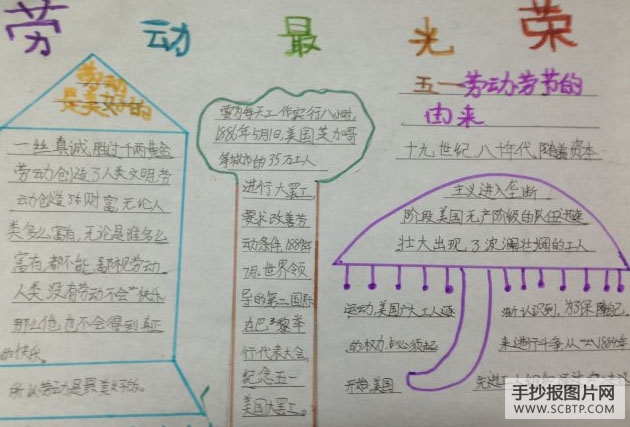 劳动最光荣
劳动
是美好的
一丝真诚,胜过千两黄金
劳动创造了人类文明,劳
动创造了财富,无论人
类多么富有,无论是谁多么
富有,都不能忽视劳动
人类没有劳动不会快乐
那么他也不会得到真正
的快乐。
所以劳动是最美好的。
劳方每天工作实行八小时,
1886年5月1日,美国芝加哥
等城市的35万工人
进行大罢工,
要求改善劳
动条件,1889年
7月,世界领
导的第二国际
在巴黎举
行代表大会,
纪念五一
美国大罢工。
五一劳动劳节的
由来
十九世纪八十年代,随着资本
主义进入垄断
阶段,美国无产阶级的队伍
壮大出现了波澜壮阔的工人
运动,美国广大工人逐
渐认识到,为了保障自己
的权力,必须起
来进行斗争,从1884年
开始,美国
先进
手抄报图片网
WWW.SCBTP.COM